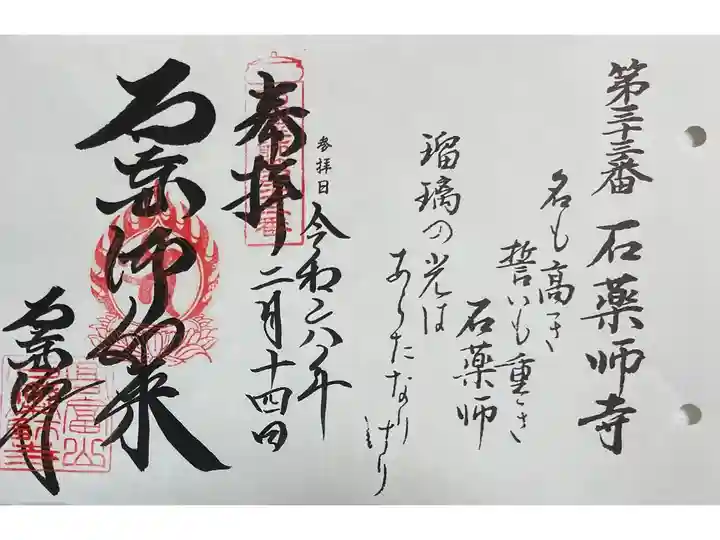 第三十三番 石薬師寺
名も高き
誓いも重き
石薬師
瑠璃の光は
あらたなりけり
参拝日 令和六年
二月十四日
奉拝
石薬師如来
石薬師寺